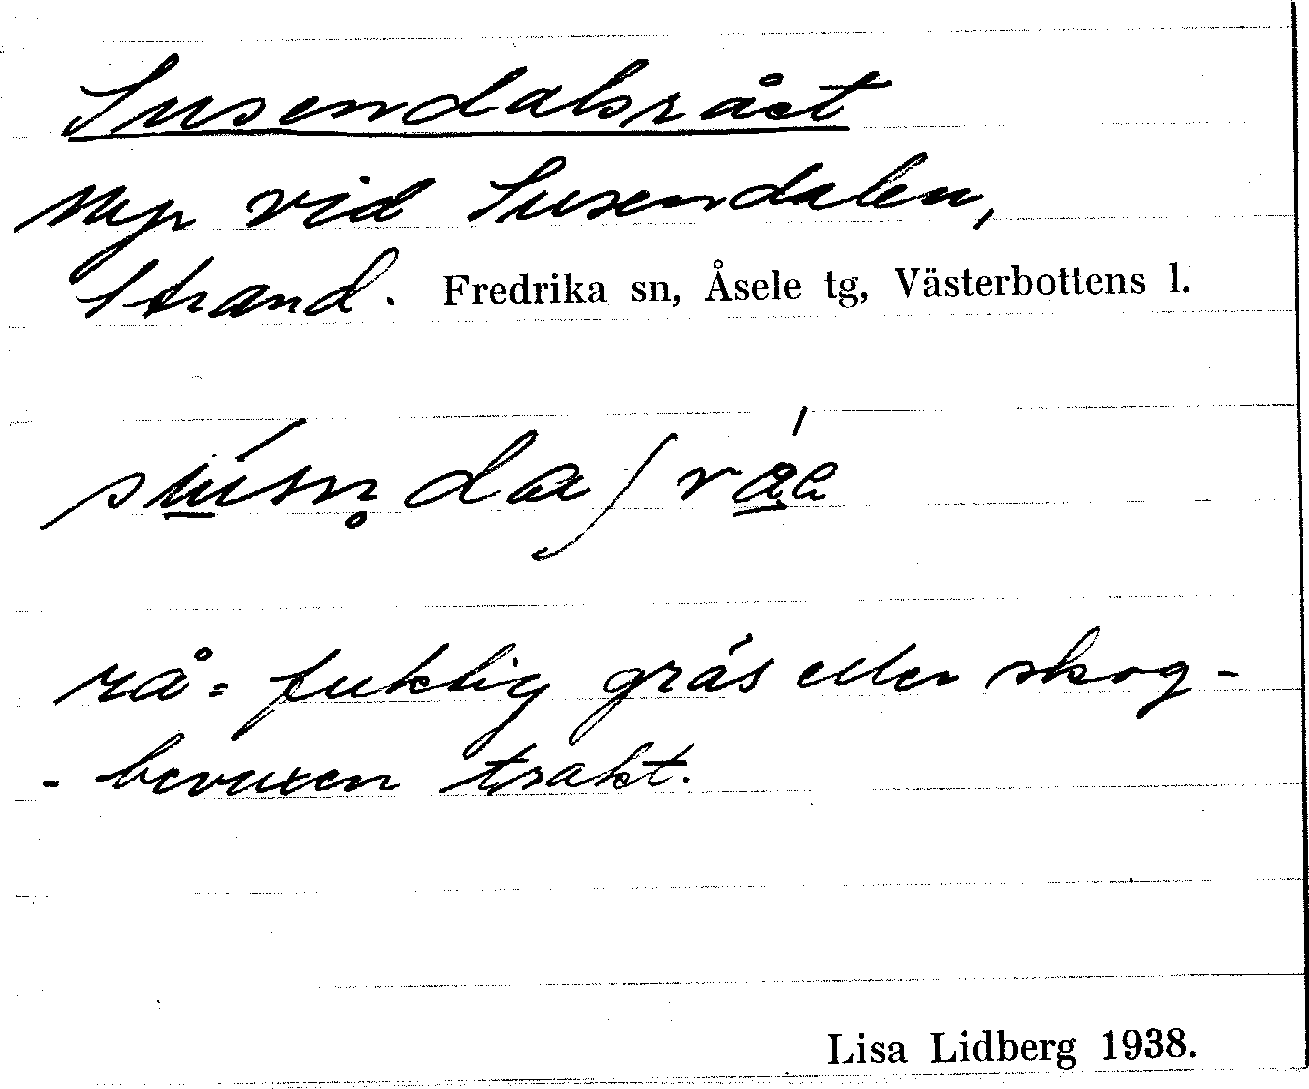 Susendalsrået
Myr vid Susendalen,
Strand. Fredrika sn, Åsele tg, Västerbottens l.
rå = fuktig gräs eller skog-
- bevuxen trakt.
Lisa Lidberg 1938.